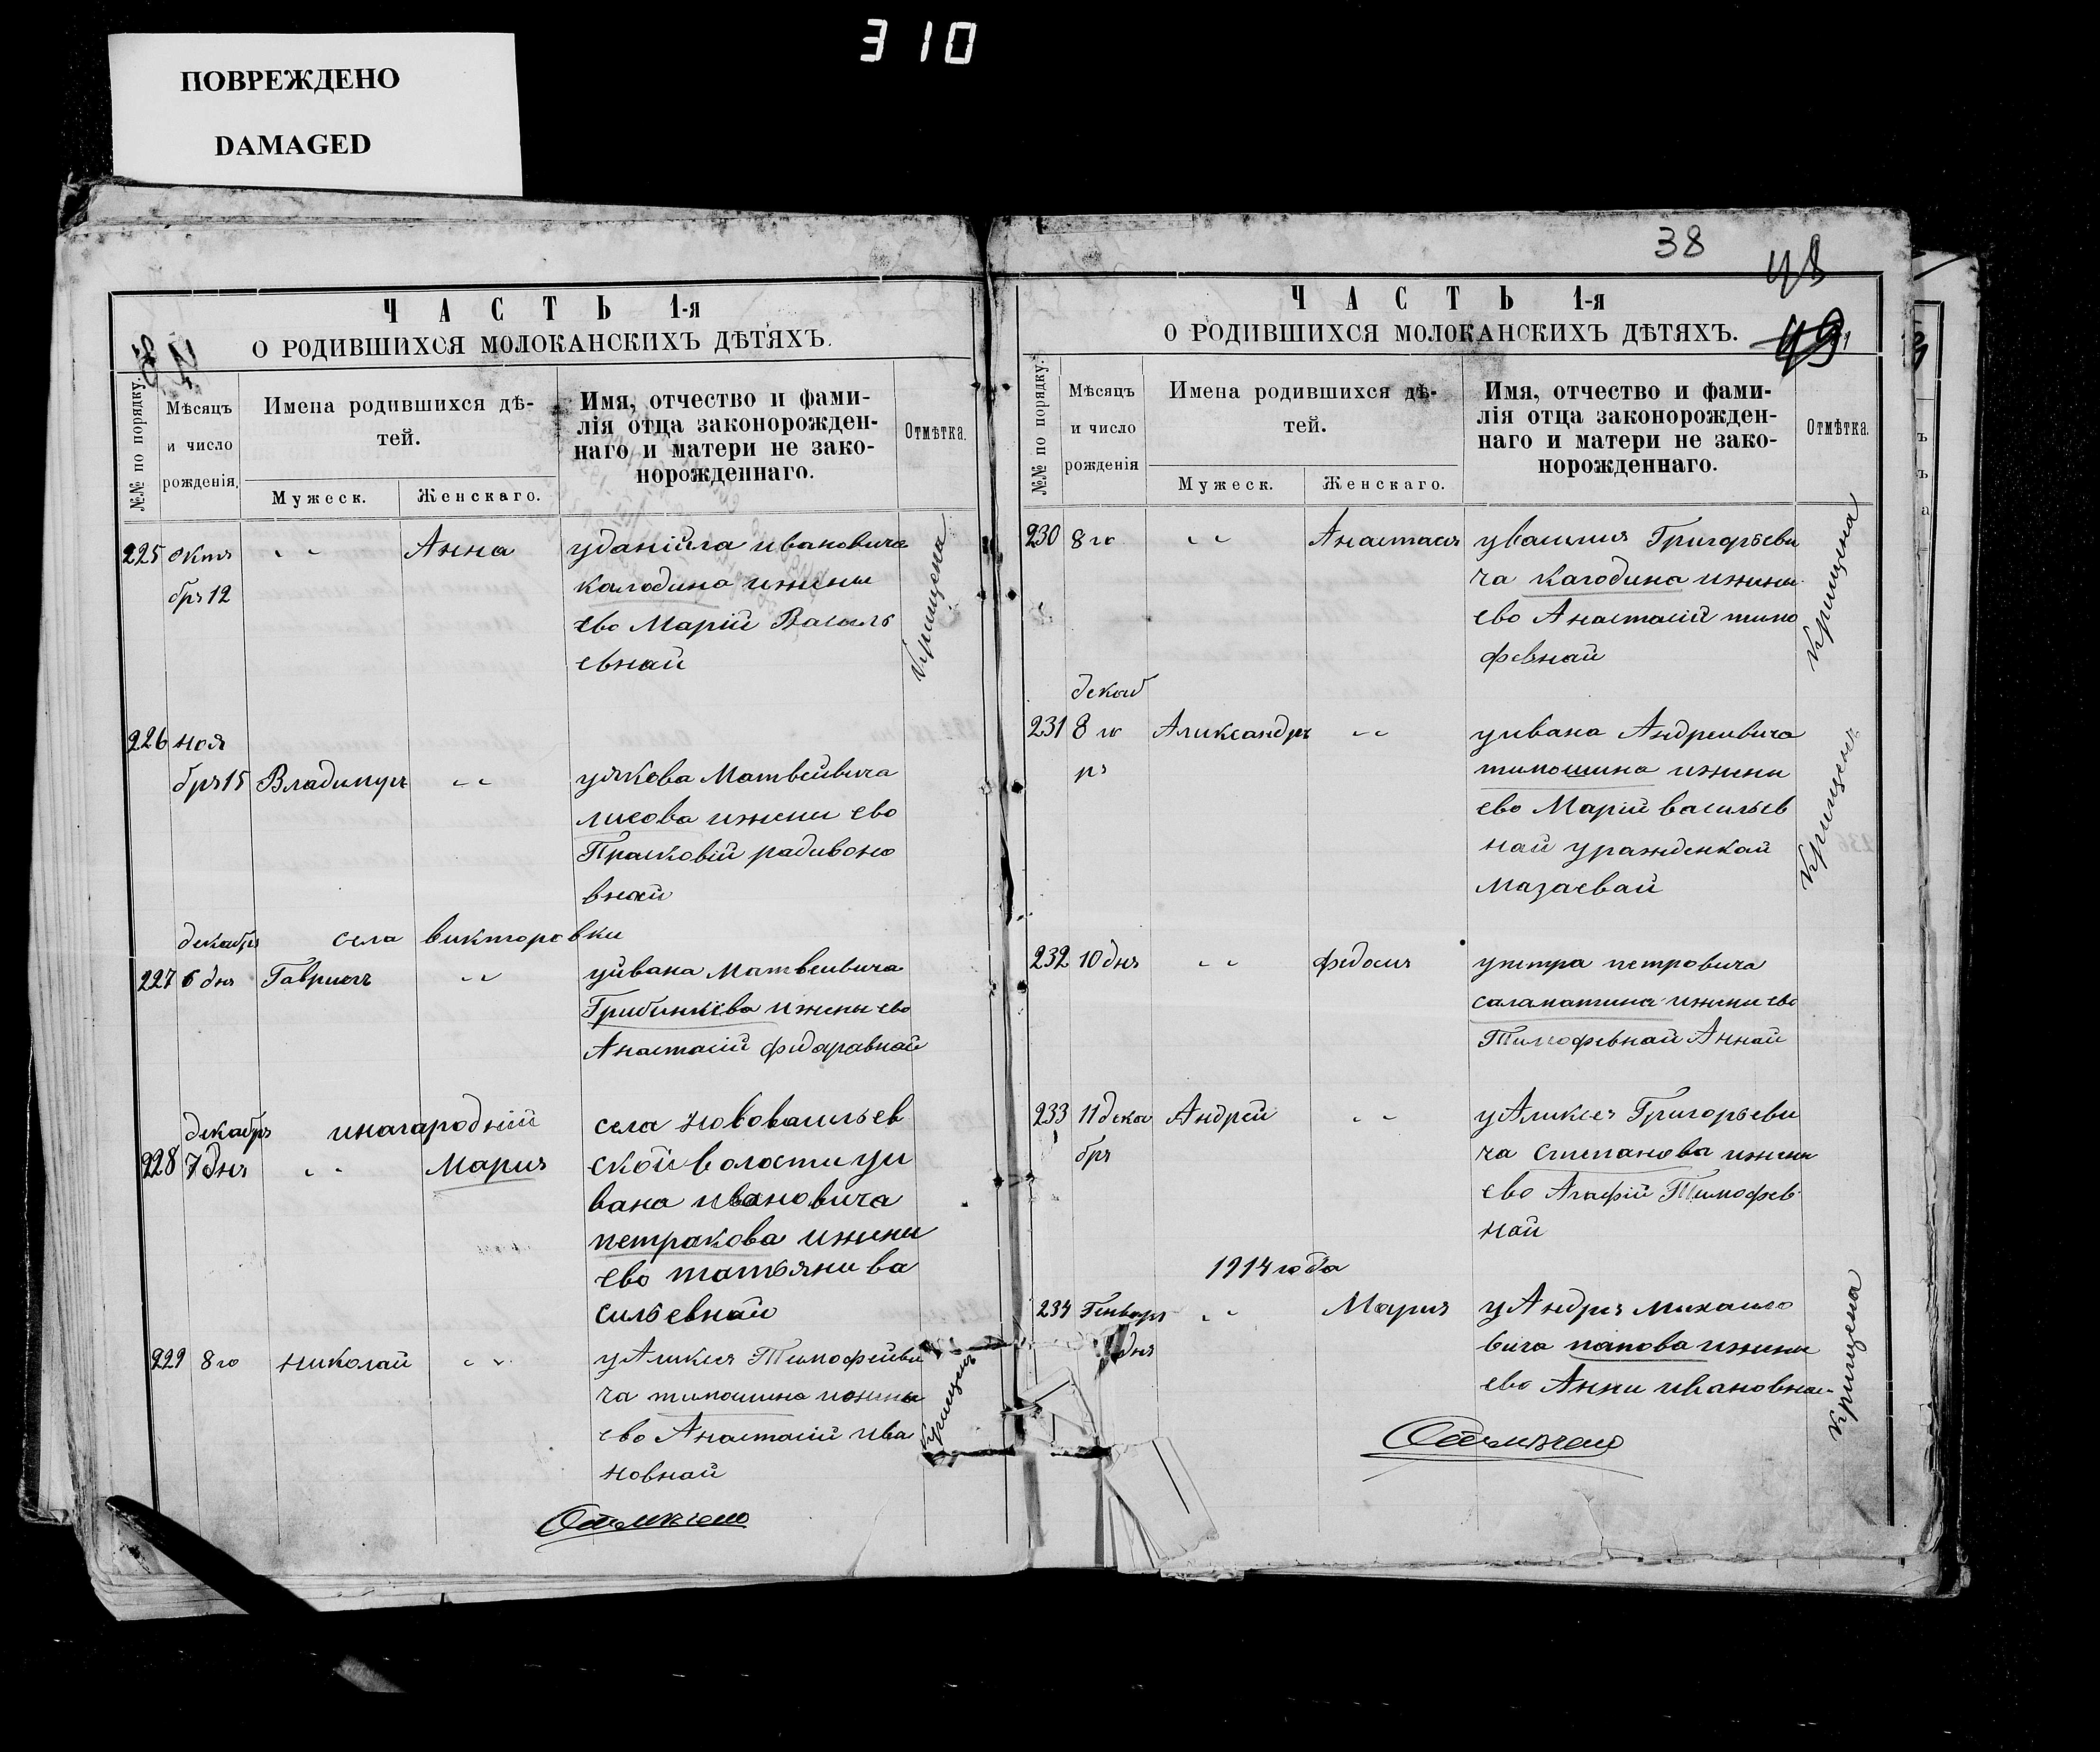 310
ПОВРЕЖДЕНО
DAMAGED
ЧАСТЬ 1-я
О РОДИВШИХСЯ МОЛОКАНСКИХЪ ДѢТЯХЪ.
№№ по порядку.
Мѣсяцъ и число рожденія.
Имена родившихся дѣ-
тей.
Мужеск.
Женскаго.
Имя, отчество и фами-
лія отца законорожден-
наго и матери не зако-
норожденнаго.
Отмѣтка.
225 Октя " " Анна уданіила ивановича
бря 12 калодина ижены
ево Марій Василь
евнай
Крищена
226 ноя
бря 15 Владимиръ " " уякова Матвеивича
лисова ижени ево
Прасковій радивоно
внай
декабря села викторовки
227 6 дня Гавриилъ " " уивана Матвеивича
Грибинкева ижены ево
Анастасій фидаравнай
декабря инагародній села нововасильев
228 7 дня " " Мария ской волости уи
вана ивановича
петракова ижени
ево татьяни ва
сильевнай
229 8 го николай " " уАликся Тимофейви
ча тимошина ижены
ево Анастасий ива
новнай
Крищенъ
38
48
49
ЧАСТЬ 1-я
О РОДИВШИХСЯ МОЛОКАНСКИХЪ ДѢТЯХЪ.
№№ по порядку.
Мѣсяцъ и число рожденія
Имена родившихся дѣ-
тей.
Мужеск.
Женскаго.
Имя, отчество и фами-
лія отца законорожден-
наго и матери не зако-
норожденнаго.
Отмѣтка.
230 8 го " " Анастася увасилия Григорьеви
ча Кагодина ижины
ево Анастасий тимо
февнай
Крищена
декаб
231 8 го Аликсандръ " " уивана Андреивича
ря тимошина ижени
ево Марій васильев
най уражденкай
Мазаевай
Крищенъ
232 10 дня " " федосия упетра петровича
саламатина ижени ево
Тимофевнай Аннай
233 11 дека Андрей " " уАликся Григорьеви
бря ча степанова ижени
ево Агафій Тимофев
най
1914 года
234 Генваря " " Мария уАндрея михаило
дня вича попова ижини
ево Анни ивановнай
Крищена